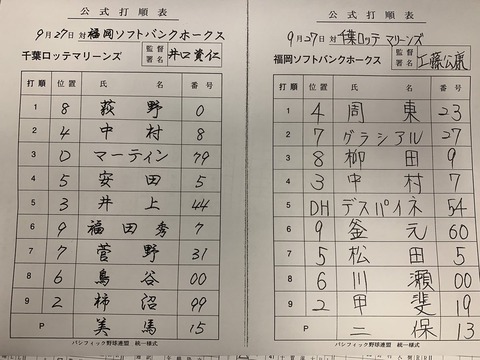 公式打順表
9月27日 対 福岡ソフトバンクホークス
千葉ロッテマリーンズ 監督署名 井口資仁
打順 位置 氏名 番号
1 8 荻野 0
2 4 中村 8
3 D マーティン 79
4 5 安田 5
5 3 井上 44
6 9 福田秀 7
7 7 菅野 31
8 6 鳥谷 00
9 2 柿沼 99
P 美馬 15
パシフィック野球連盟 統一様式
公式打順表
9月27日 対 千葉ロッテマリーンズ
福岡ソフトバンクホークス 監督署名 工藤公康
打順 位置 氏名 番号
1 4 周東 23
2 7 グラシアル 27
3 8 柳田 9
4 3 中村 7
5 DH デスパイネ 54
6 9 釜元 60
7 5 松田 5
8 6 川瀬 00
9 2 甲斐 19
P 二保 13
パシフィック野球連盟 統一様式